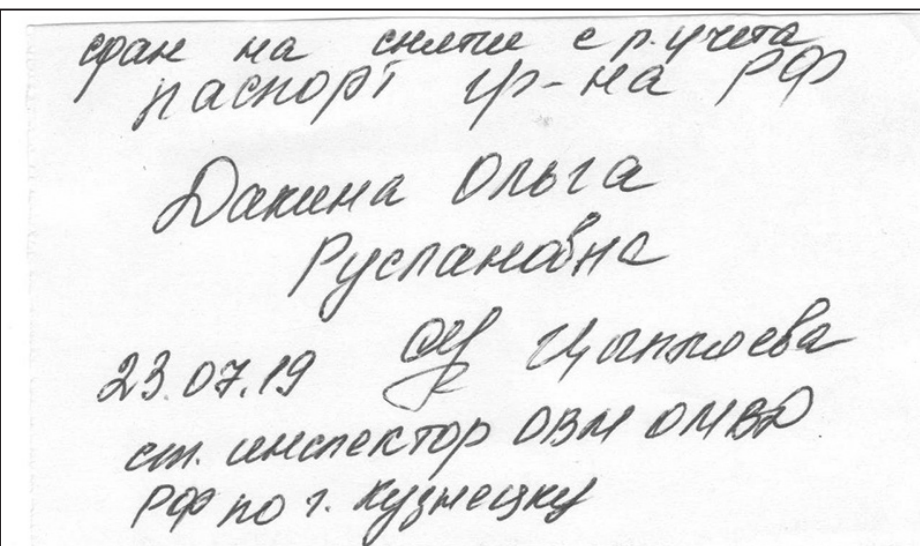 сдан на снятие с р. учета
паспорт гр-на РФ
Данина Ольга
Руслановна
23.07.19
ст. инспектор ОВМ ОМВД
РФ по г. Кузнецку